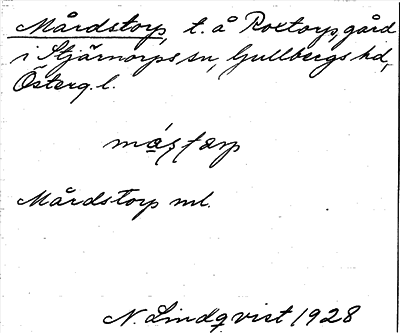 Mårdstorp, t. å Roxtorp, gård
i Stjärnorps sn, Gullbergs hd,
Österg. l.
Mårdstorp ml.
N. Lindqvist 1928